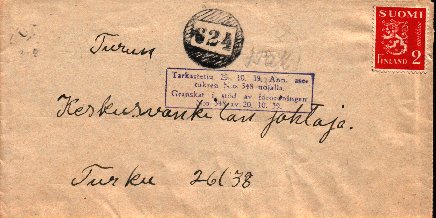 SUOMI
FINLAND
2
S24
Turun
Tarkastettu 20. 10. 39. Ann. ase-
tuksen N:o 348 nojalla.
Granskat i stöd av förordningen
N:o 348 av 20. 10. 39.
Keskusvankilan johtaja.
Turku 26638